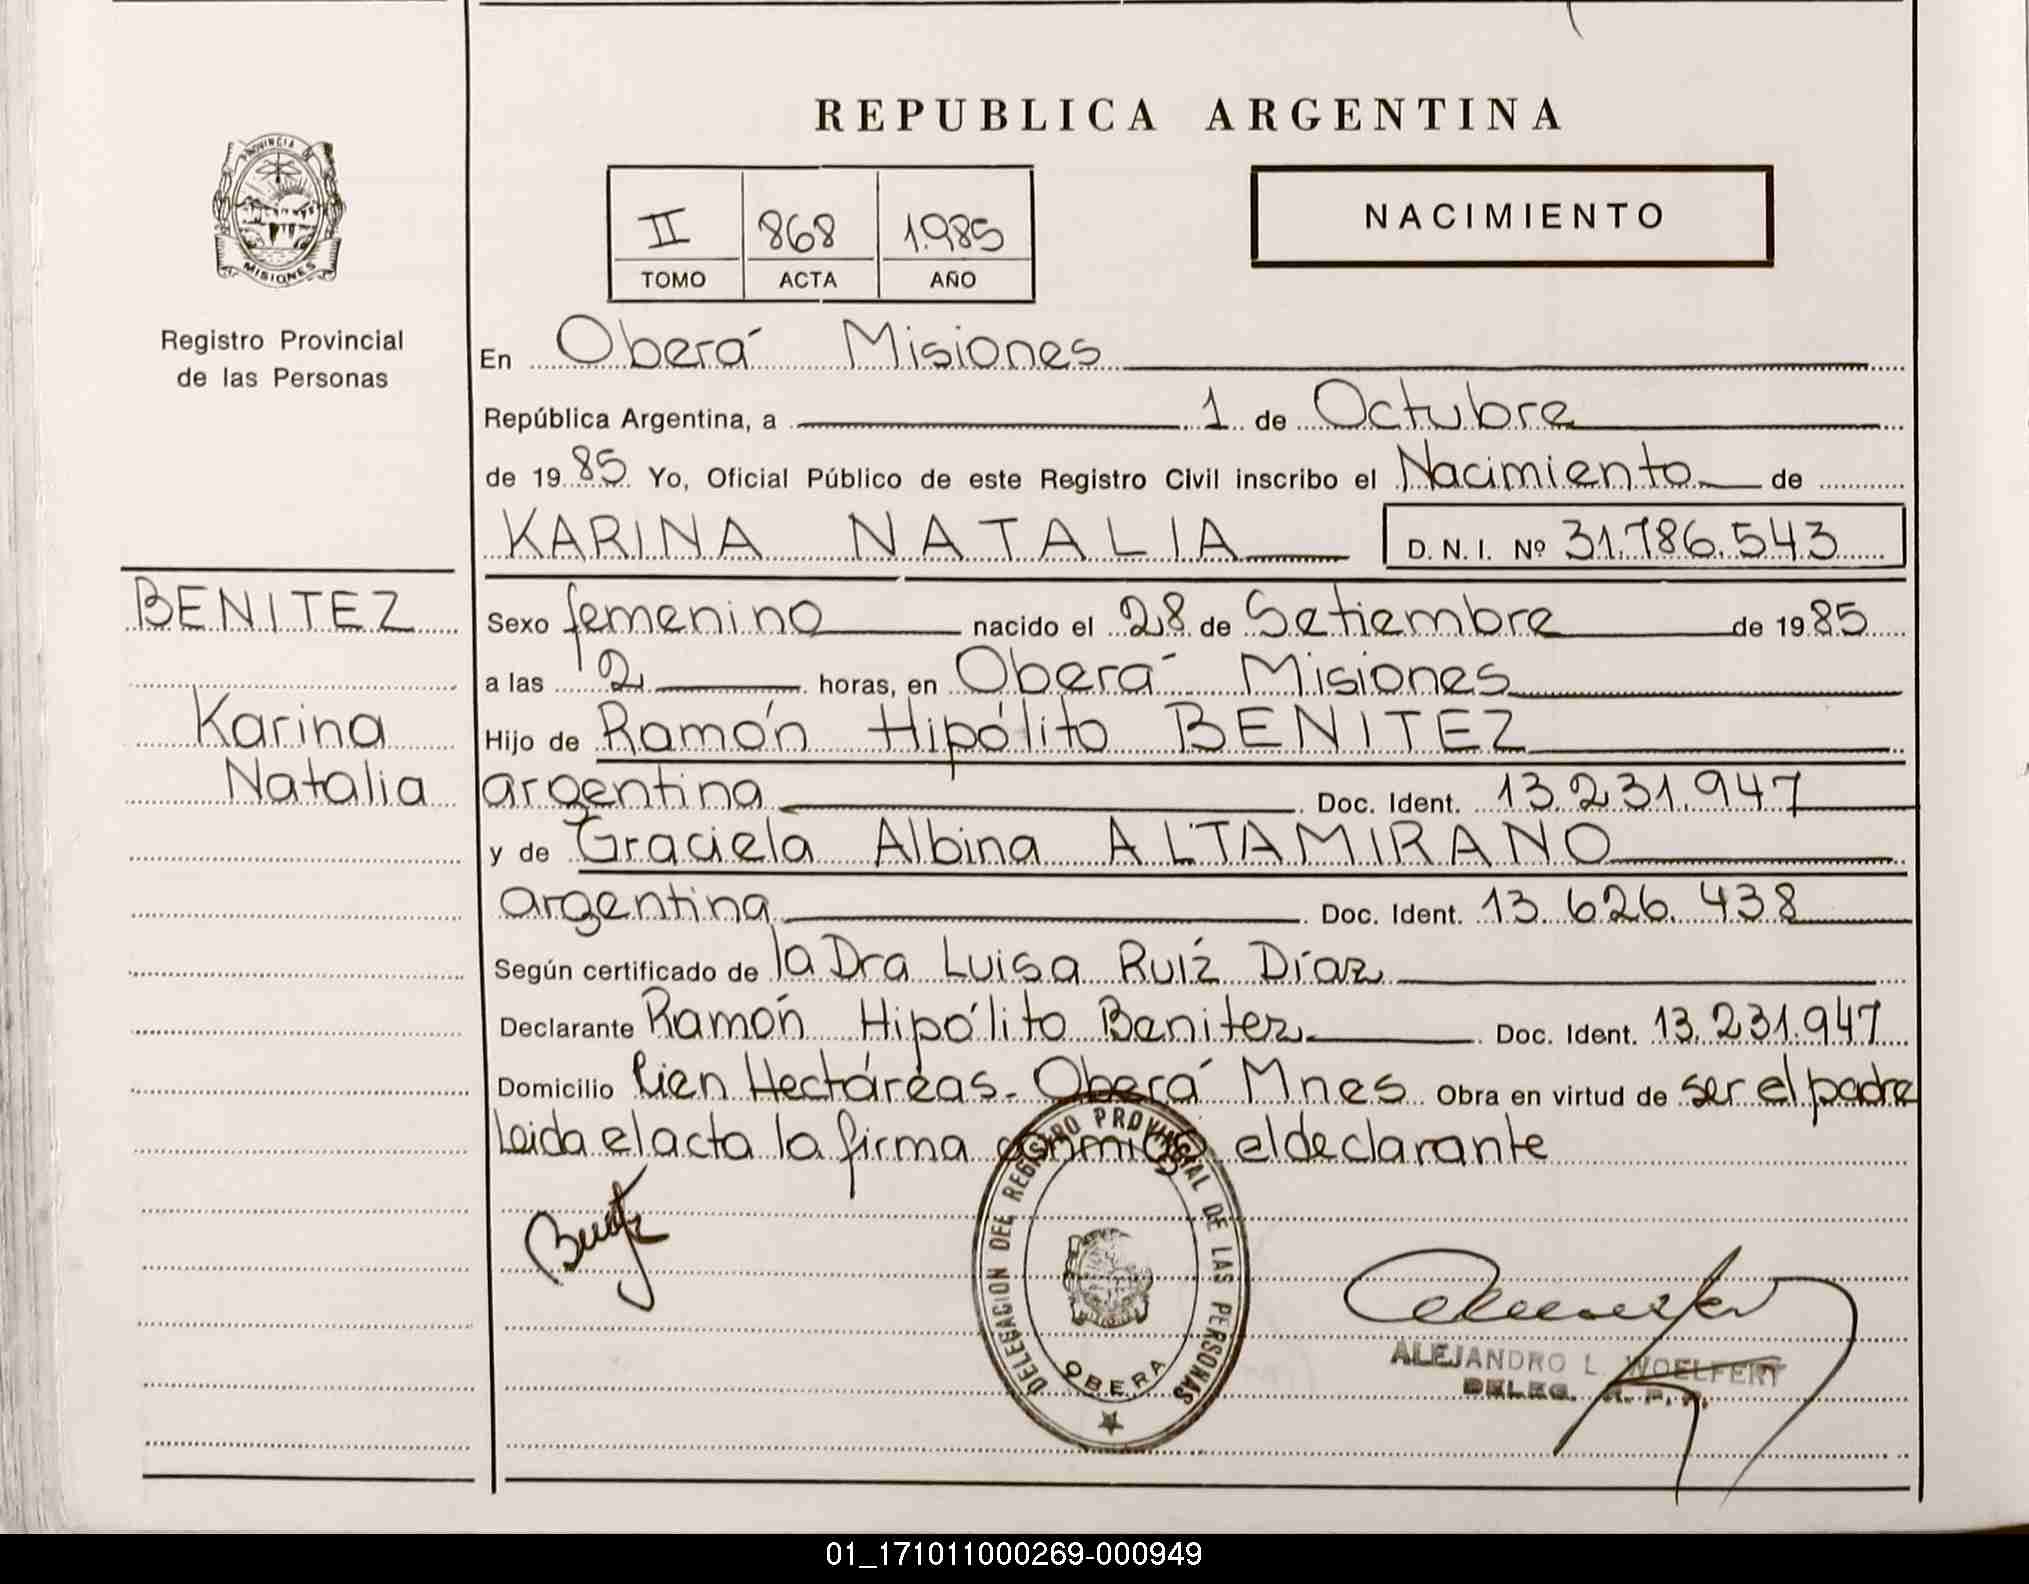 REPUBLICA ARGENTINA
PROVINCIA DE
MISIONES
Registro Provincial
de las Personas
II 868 1.985
TOMO ACTA AÑO
NACIMIENTO
En Oberá Misiones
República Argentina, a 1 de Octubre
de 1985 Yo, Oficial Público de este Registro Civil inscribo el Nacimiento de
KARINA NATALIA D. N. I. Nº 31.786.543
BENITEZ
Karina
Natalia
Sexo femenino nacido el 28 de Setiembre de 1985
a las 2 horas, en Oberá Misiones
Hijo de Ramón Hipólito BENITEZ
argentina Doc. Ident. 13.231.947
y de Graciela Albina ALTAMIRANO
argentina Doc. Ident. 13.626.438
Según certificado de la Dra Luisa Ruíz Díaz
Declarante Ramón Hipólito Benitez Doc. Ident. 13.231.947
Domicilio Cien Hectáreas - Oberá Mnes Obra en virtud de ser el padre
Leida el acta la firma conmigo el declarante
DELEGACION DEL REGISTRO PROVINCIAL DE LAS PERSONAS
OBERA
ALEJANDRO L WOELFERT
DELEG. R. P. P.
01_171011000269-000949